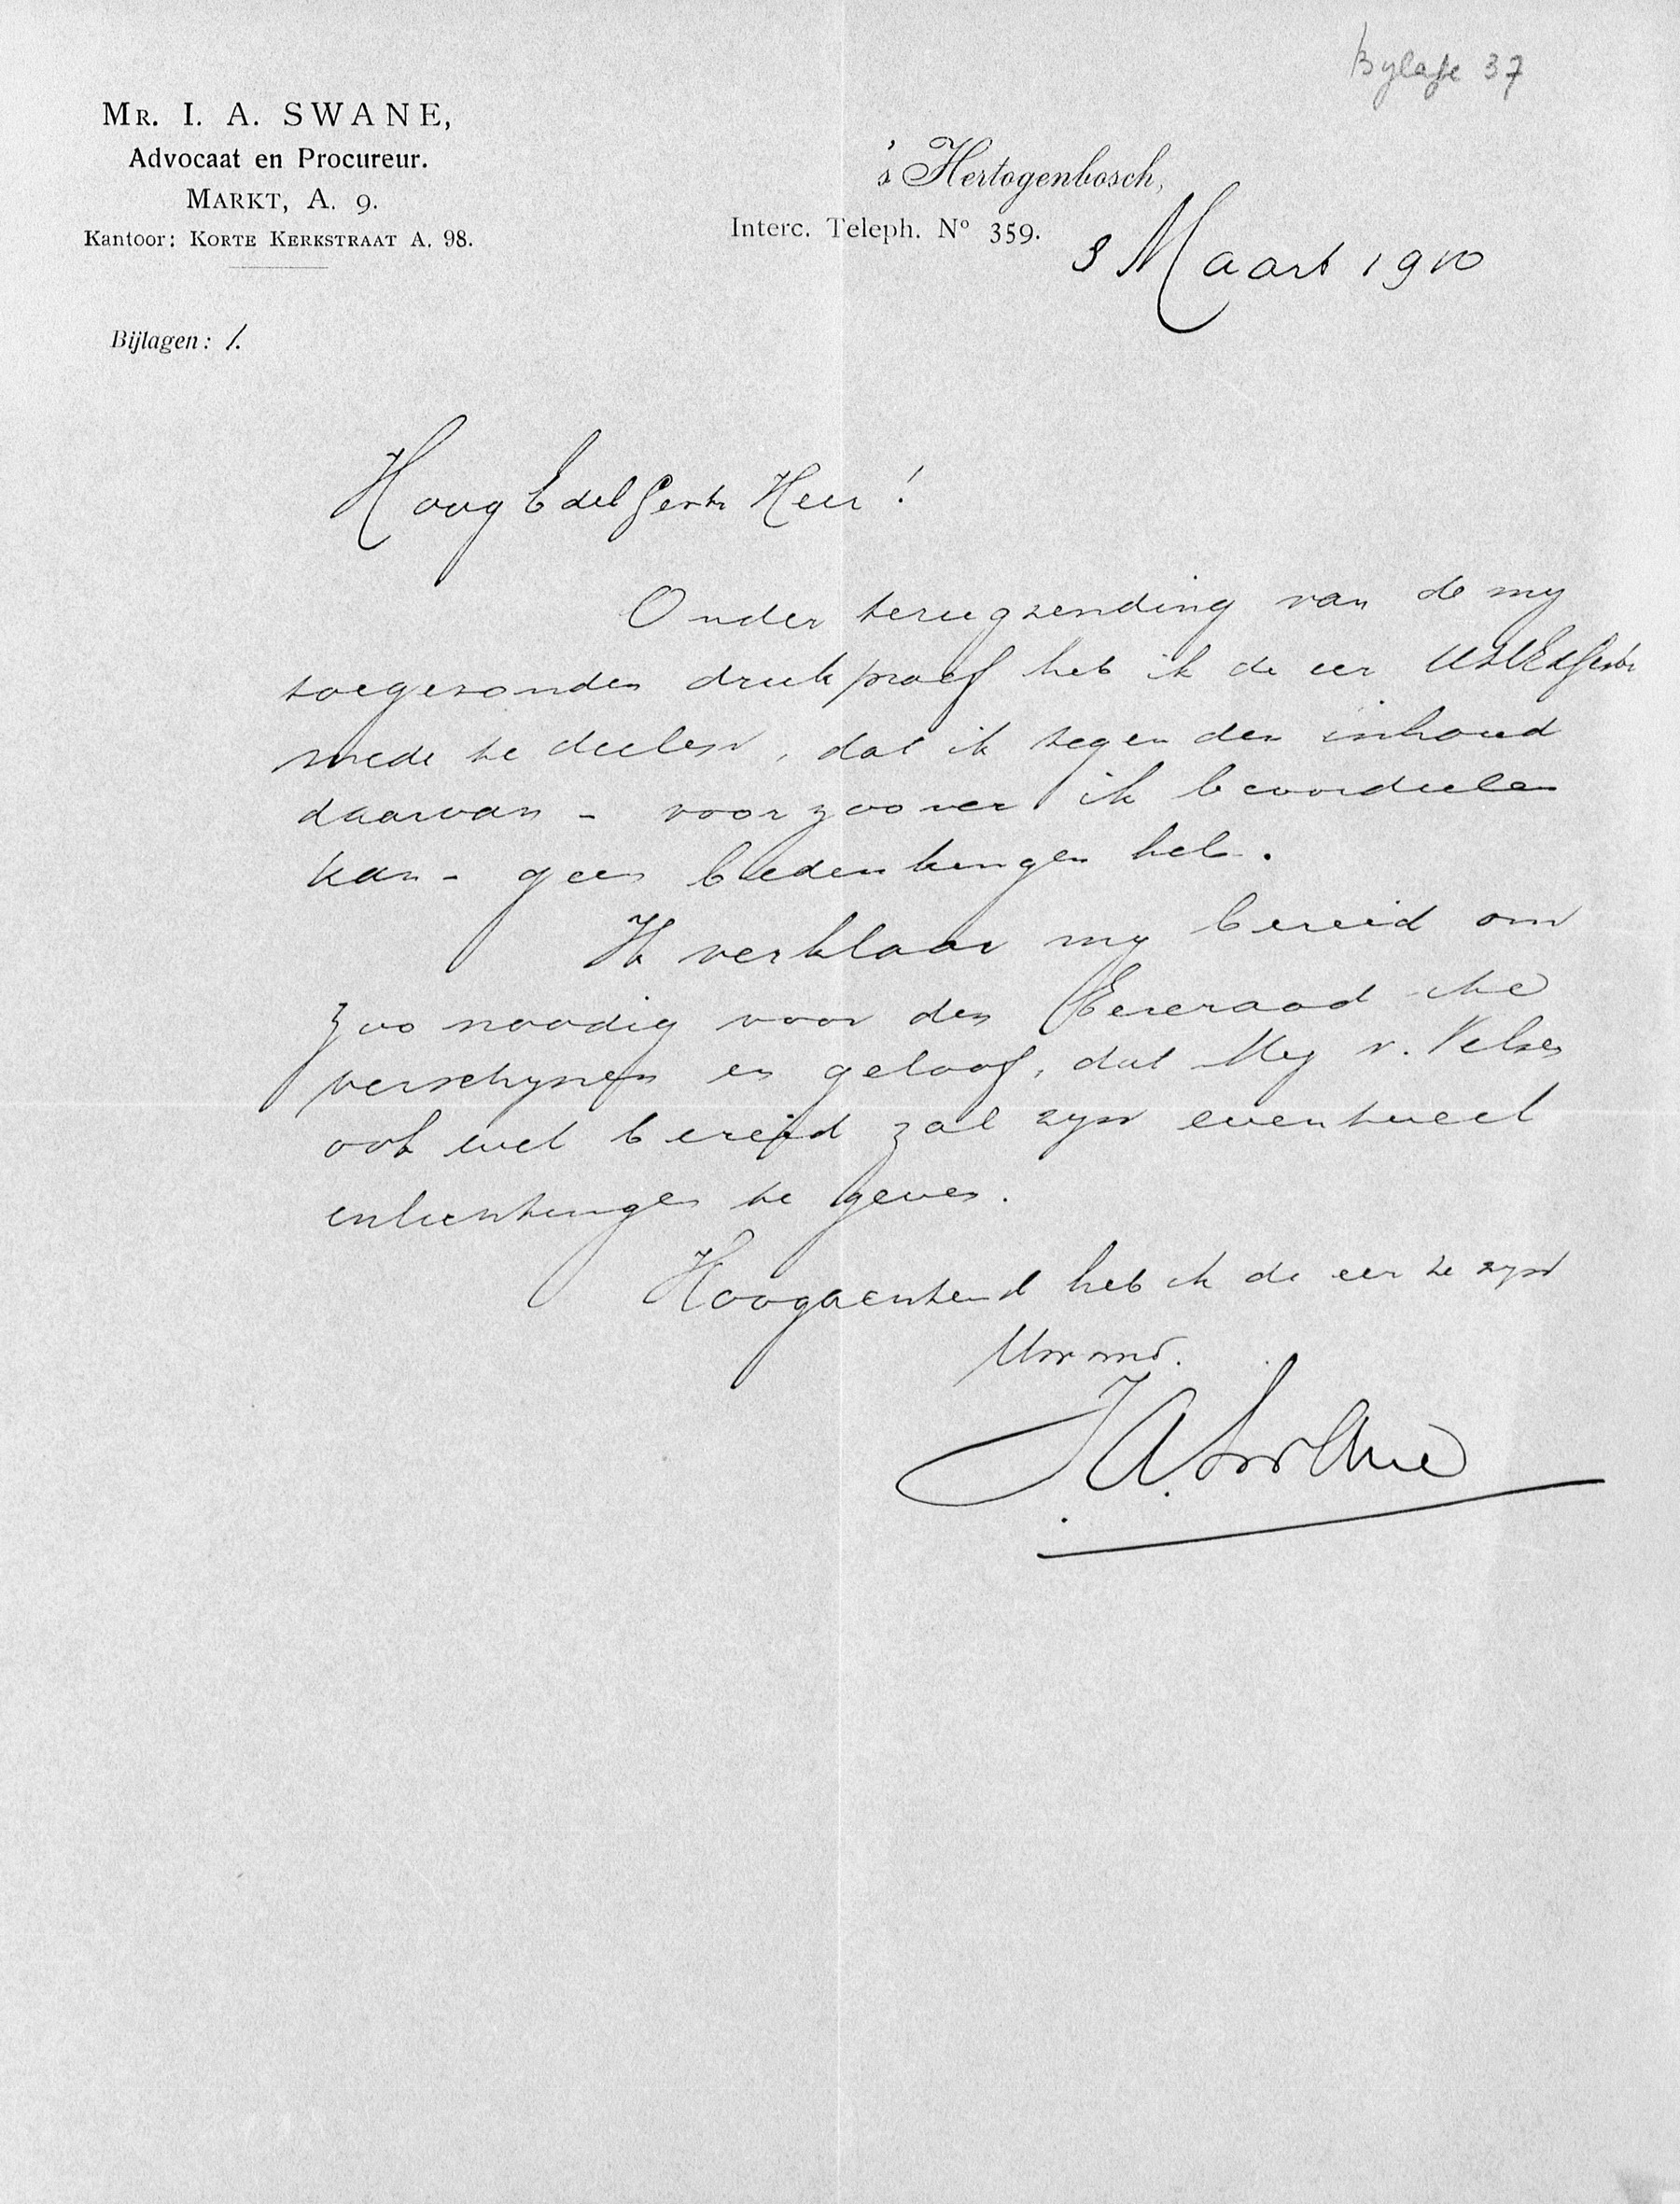 Bylage 37
MR. I. A. SWANE,
Advocaat en Procureur.
MARKT, A. 9.
Kantoor: KORTE KERKSTRAAT A. 98.
's Hertogenbosch,
Interc. Teleph. Nº 359.
3 Maart 1910
Bijlagen: 1.
Hoog Edel Gestr Heer!
Onder terugzending van de my
toegezonden drukproef heb ik de eer
mede te deelen, dat ik tegen den inhoud
daarvan - voor zoover ik beoordeelen
kan - geen bedenkingen heb.
Ik verklaar my bereid om
zoo noodig voor den Eereraad te
verschynen en geloof, dat Mej v. Velsen
ook wel bereid zal zyn eventueel
inlichtingen te geven.
Hoogachtend heb ik de eer te zyn
Uw
I.A. Swane